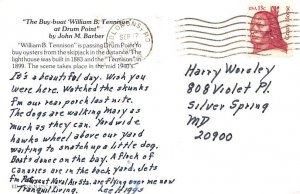 "The Buy-boat "William B. Tennison"
at Drum Point"
by John M. Barber
"William B. Tennison" is passing Drum Point to
buy oysters from the skipjack in the distance. The
lighthouse was built in 1883 and the "Tennison" in
1899. The scene takes place in the mid 1940's.
It's a beautiful day. Wish you
were here. Watched the skunks
fm our rear porch last nite.
The dogs are walking Mary as
much as they can. Yard wide
hawks wheel above our yard
waiting to snatch up a little dog.
Boats dance on the bay. A flock of
Canaries are in the back yard. Jets
fm Patuxent Naval Air Sta. are flying over me now
Tranquil Living. Lee Higgs
SEP 17
USA 13c
Crazy Horse
Harry Worsley
808 Violet Pl.
Silver Spring
MD
20900